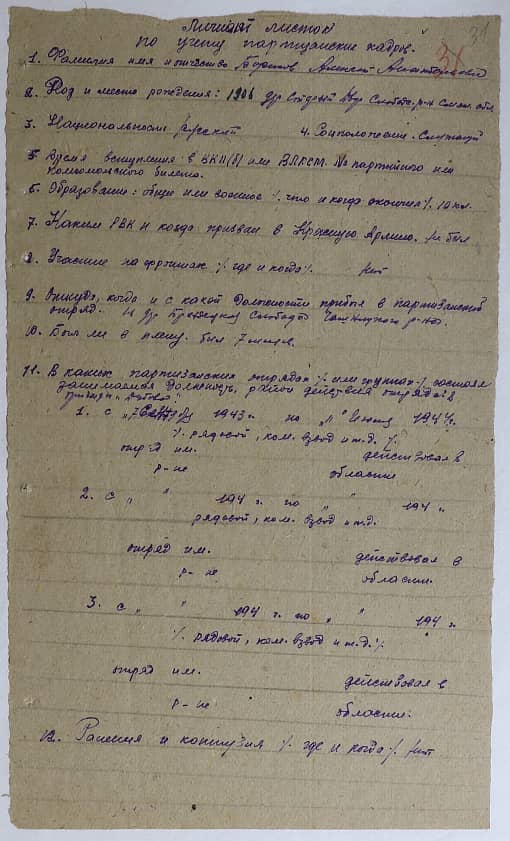 31
Личный листок
по учету партизанские кадров.
31
1. Фамилия имя и отчество
2. Год и место рождения: 1906
3. Национальность Русский 4. Соцположение. Служащий
5. Время вступления в ВКП(б) или ВЛКСМ. № партийного или
комсомольского билета.
6. Образование: общее или военное ٪ что и когда окончил ٪ 10 кл.
7. Каким РВК и когда призван в Красную Армию. Не был
8. Участие на фронтах ٪ где и когда ٪. Нет
9. Откуда, когда и с какой должности прибыл в партизанский
отряд. Чашникского р-на.
10. Был ли в плену. был 7 м-цев.
11. В каких партизанских отрядах ٪ или группах ٪ состоял
занимаемая должность, район действия отряда
1. с 1943 г. по „11" Июня 1944 г.
٪ рядовой, ком. взвод и т.д. ٪
отряд им. действовал в
р-не области.
2. с „ " 194 г. по „ " 194 г.
рядовой, ком. взвод и т.д.
отряд им. действовал в
р-не области.
3. с „ " 194 г. по „ " 194 г.
٪ рядовой, ком. взвод и т.д. ٪
отряд им. действовал в
р-не области.
12. Ранения и контузия ٪ где и когда ٪ Нет